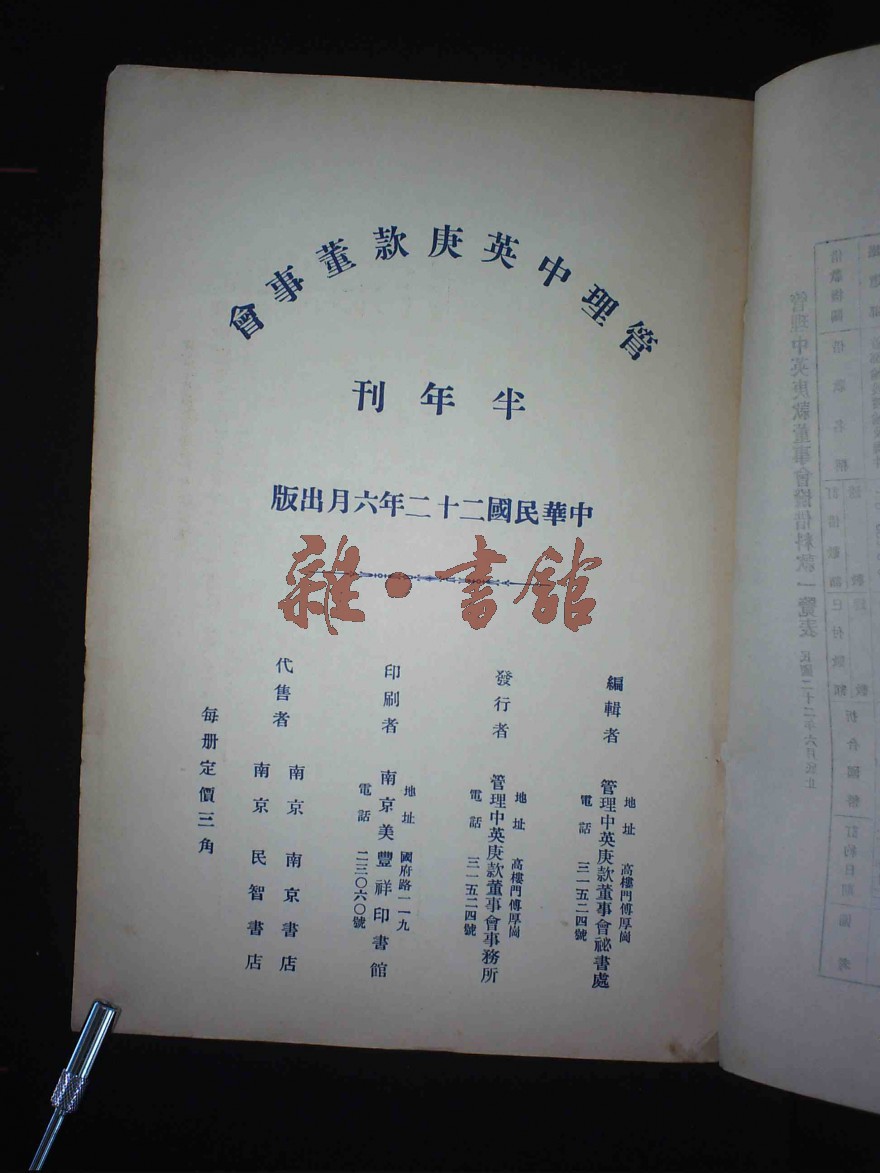 管理中英庚款董事會
半年刊
中華民國二十二年六月出版
雜·書館
編輯者
管理中英庚款董事會祕書處
地址 高樓門傅厚崗
電話 三一五二四號
發行者
管理中英庚款董事會事務所
地址 高樓門傅厚崗
電話 三一五二四號
印刷者
南京美豐祥印書館
地址 國府路一一九
電話 二三〇六〇號
代售者
南京 南京書店
南京 民智書店
每册定價三角
管理中英庚款董事會撥借料款一覽表 民國二十二年六月底止